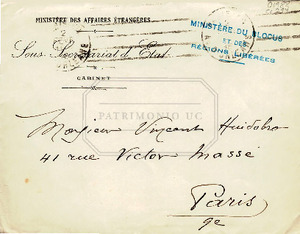 MINISTÈRE DES AFFAIRES ÉTRANGÈRES
MINISTÈRE DU BLOCUS
ET DES
RÉGIONS LIBÉRÉES
Sous-Secrétariat d'État
CABINET
PATRIMONIO UC
Monsieur Vincent Huidobro
41 rue Victor Massé
Paris
9e